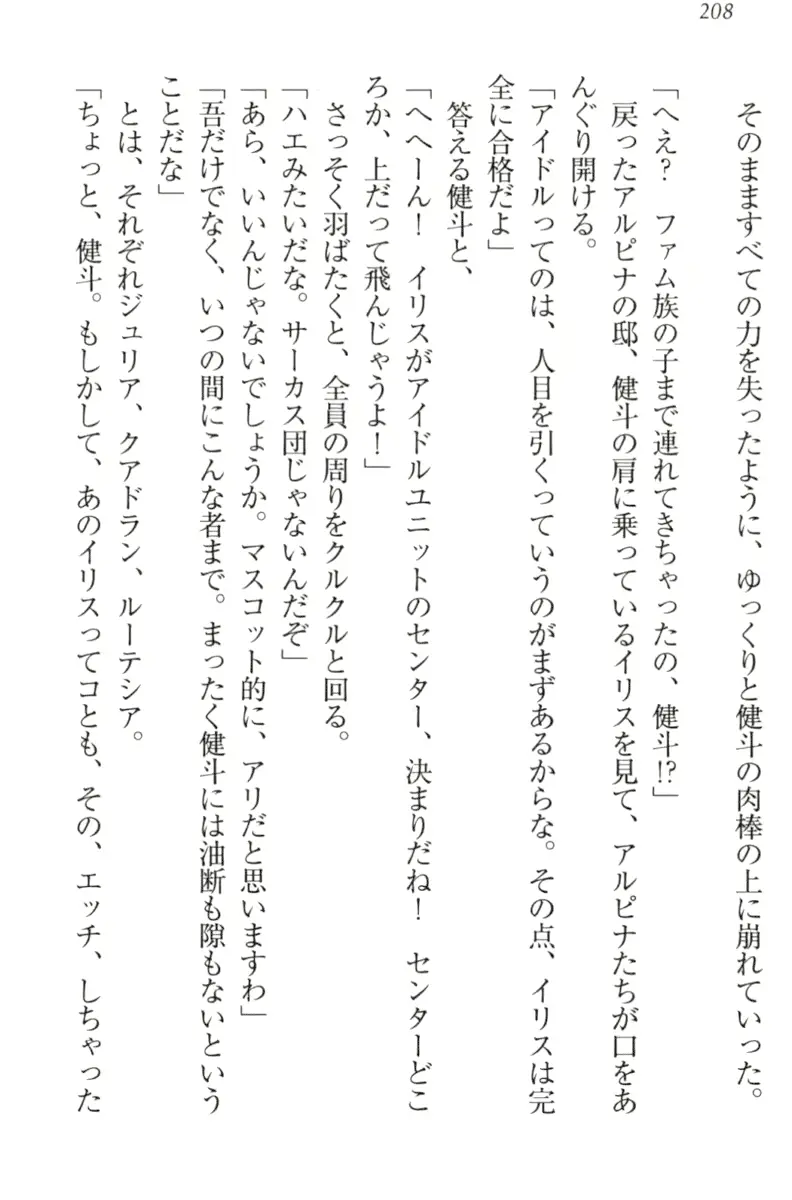 208
そのまますべての力を失ったように、ゆっくりと健斗の肉棒の上に崩れていった。
「へえ?　ファム族の子まで連れてきちゃったの、健斗!?」
戻ったアルピナの邸、健斗の肩に乗っているイリスを見て、アルピナたちが口をあ
んぐり開ける。
「アイドルってのは、人目を引くっていうのがまずあるからな。その点、イリスは完
全に合格だよ」
答える健斗と、
「へへーん!　イリスがアイドルユニットのセンター、決まりだね!　センターどこ
ろか、上だって飛んじゃうよ!」
さっそく羽ばたくと、全員の周りをクルクルと回る。
「ハエみたいだな。サーカス団じゃないんだぞ」
「あら、いいんじゃないでしょうか。マスコット的に、アリだと思いますわ」
「吾だけでなく、いつの間にこんな者まで。まったく健斗には油断も隙もないという
ことだな」
とは、それぞれジュリア、クアドラン、ルーテシア。
「ちょっと、健斗。もしかして、あのイリスってコとも、その、エッチ、しちゃった